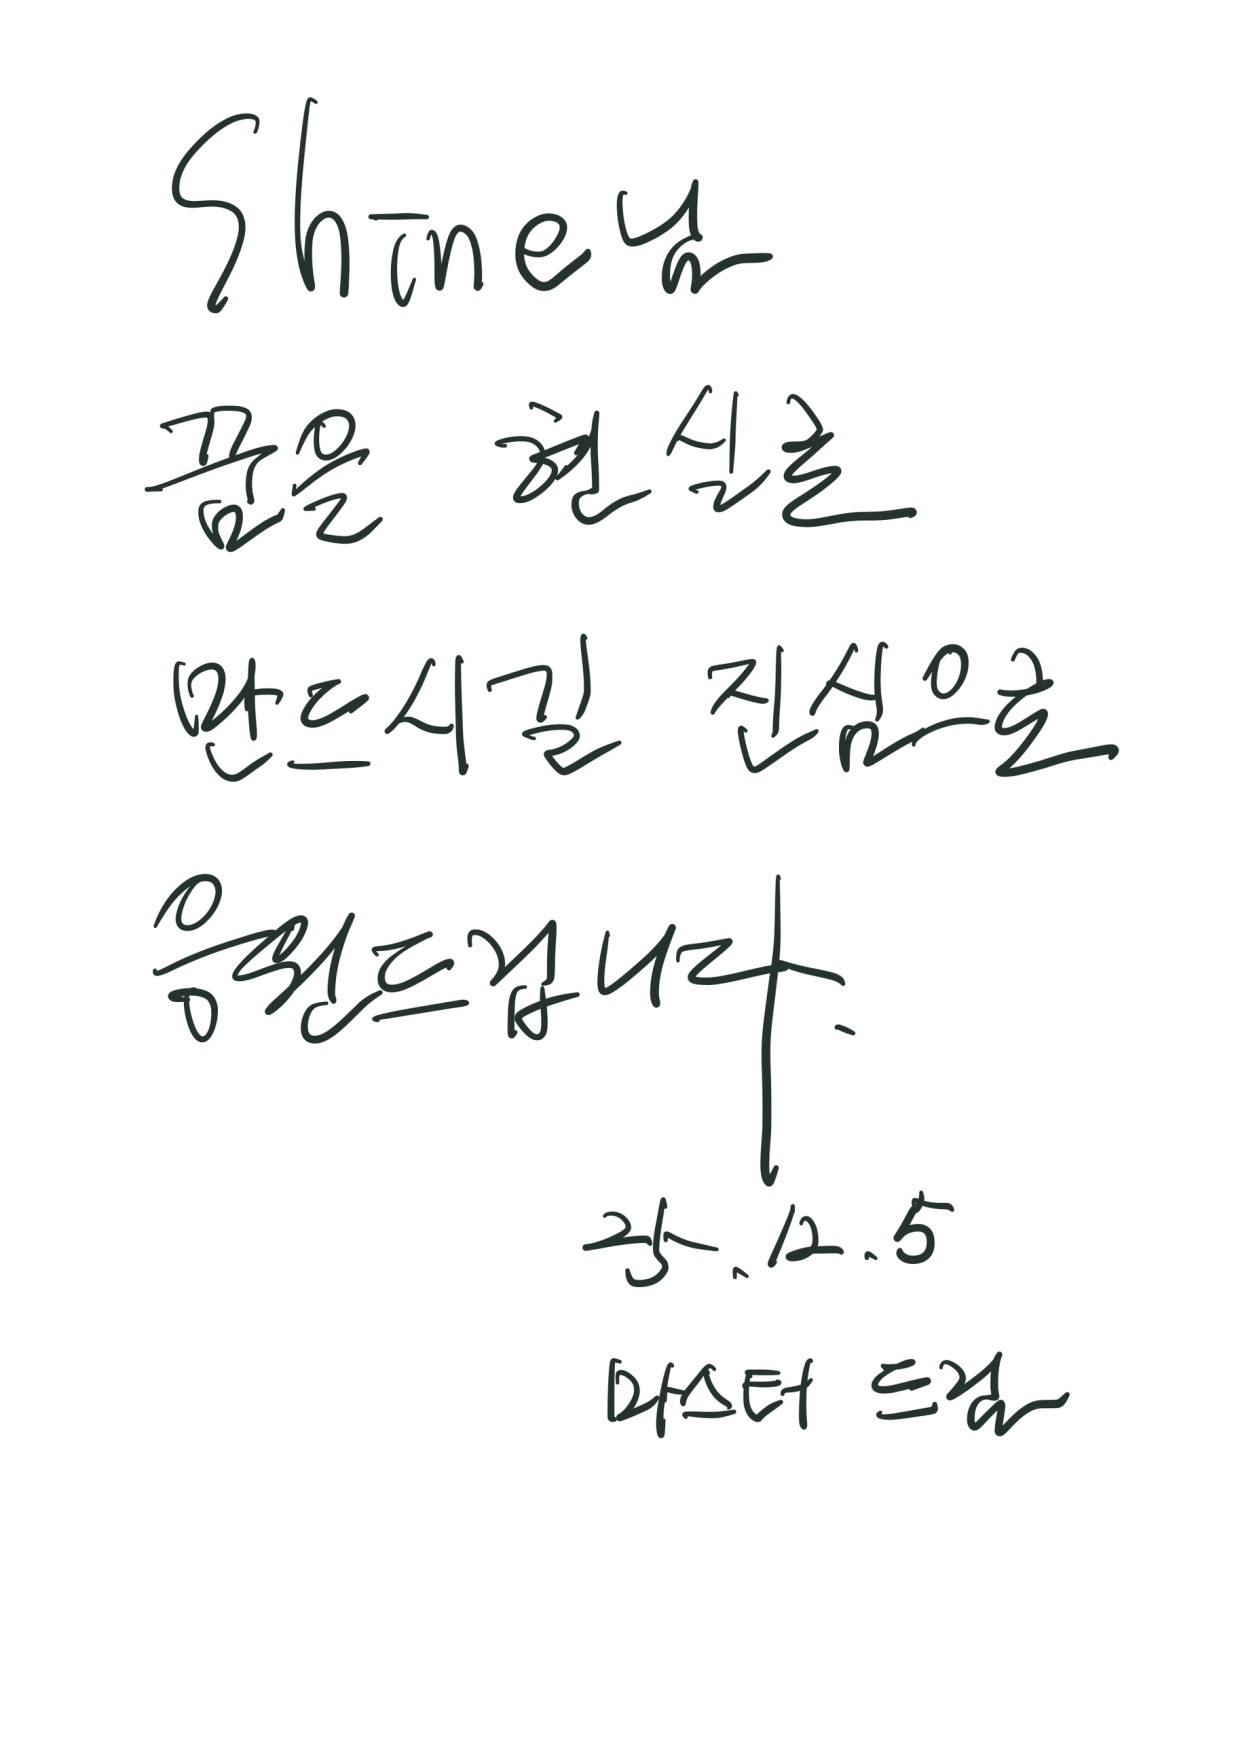 Shine님
꿈을 현실로
만드시길 진심으로
응원드립니다.
25.12.5
마스터 드림